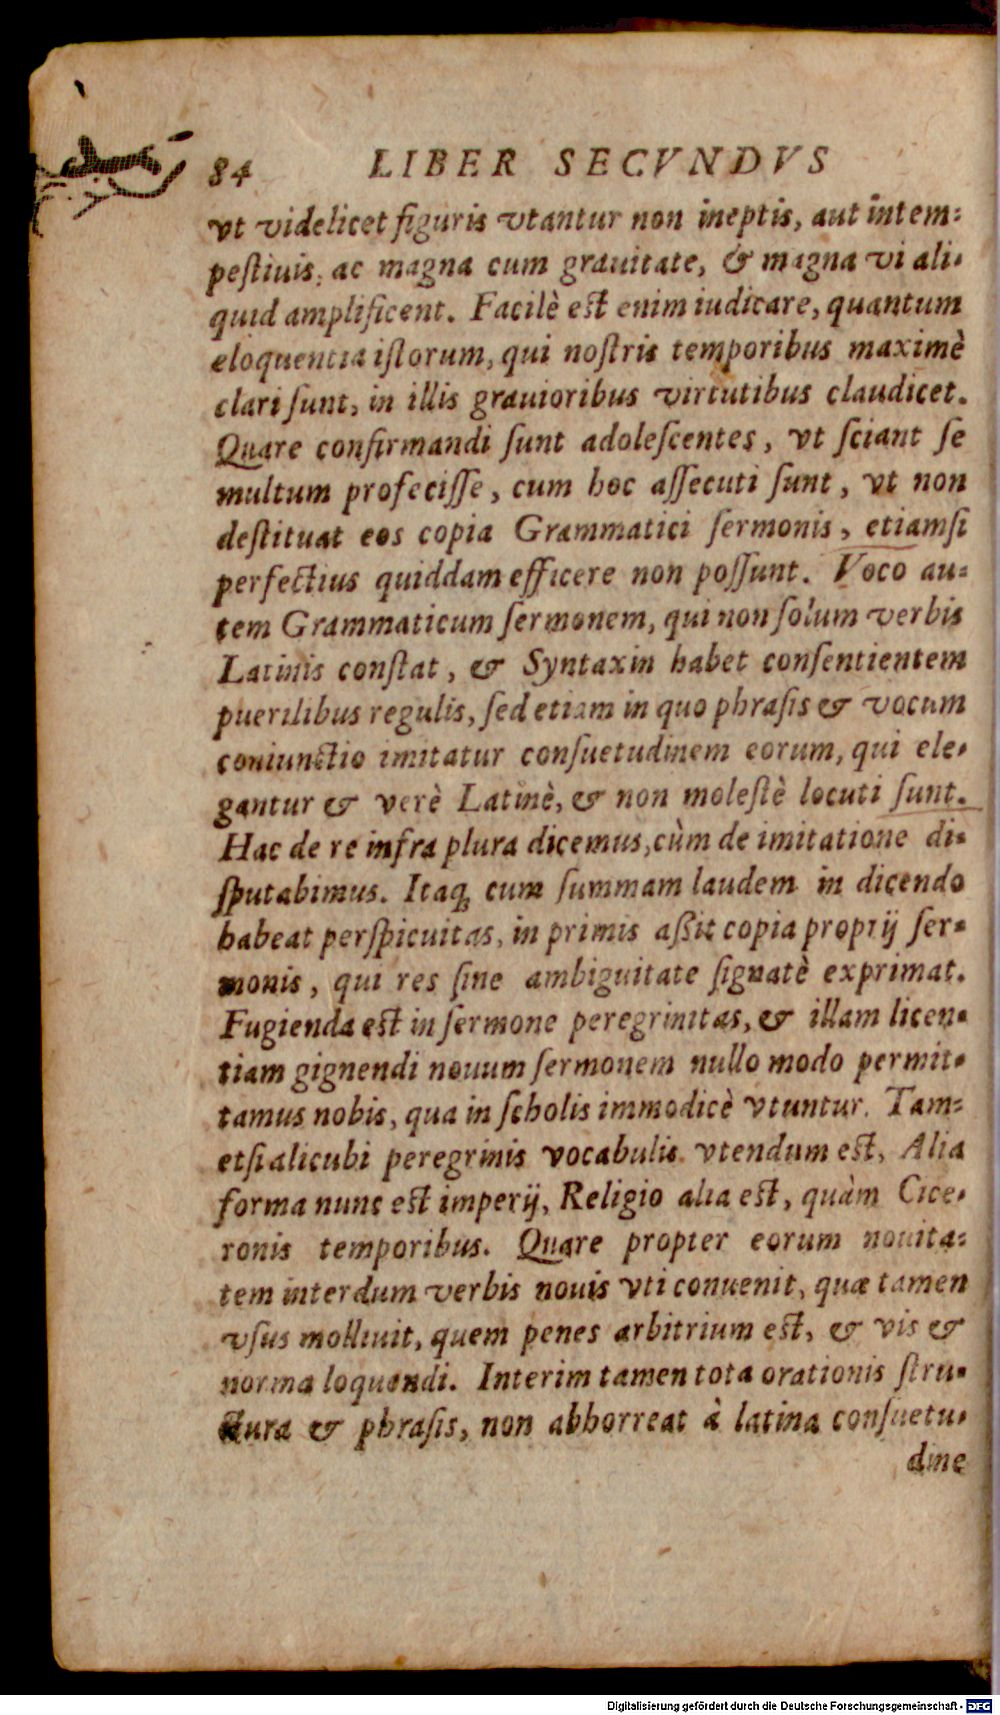 84 LIBER SECVNDVS
vt videlicet figuris vtantur non ineptis, aut intem-
pestiuis, ac magna cum grauitate, & magna vi ali-
quid amplificent. Facilè est enim iudicare, quantum
eloquentia istorum, qui nostris temporibus maximè
clari sunt, in illis grauioribus virtutibus claudicet.
Quare confirmandi sunt adolescentes, vt sciant se
multum profecisse, cum hoc assecuti sunt, vt non
destituat eos copia Grammatici sermonis, etiamsi
perfectius quiddam efficere non possunt. Voco au-
tem Grammaticum sermonem, qui non solum verbis
Latinis constat, & Syntaxin habet consentientem
puerilibus regulis, sed etiam in quo phrasis & vocum
coniunctio imitatur consuetudinem eorum, qui ele-
gantur & verè Latinè, & non molestè locuti sunt.
Hac de re infra plura dicemus, cùm de imitatione di-
sputabimus. Itaq; cum summam laudem in dicendo
habeat perspicuitas, in primis assit copia proprij ser-
monis, qui res sine ambiguitate signatè exprimat.
Fugienda est in sermone peregrinitas, & illam licen-
tiam gignendi nouum sermonem nullo modo permit-
tamus nobis, qua in scholis immodicè vtuntur. Tam-
etsi alicubi peregrinis vocabulis vtendum est, Alia
forma nunc est imperij, Religio alia est, quàm Cice-
ronis temporibus. Quare propter eorum nouita-
tem interdum verbis nouis vti conuenit, quæ tamen
vsus molliuit, quem penes arbitrium est, & vis &
norma loquendi. Interim tamen tota orationis stru-
ctura & phrasis, non abhorreat à latina consuetu-
dine
Digitalisierung gefördert durch die Deutsche Forschungsgemeinschaft - DFG